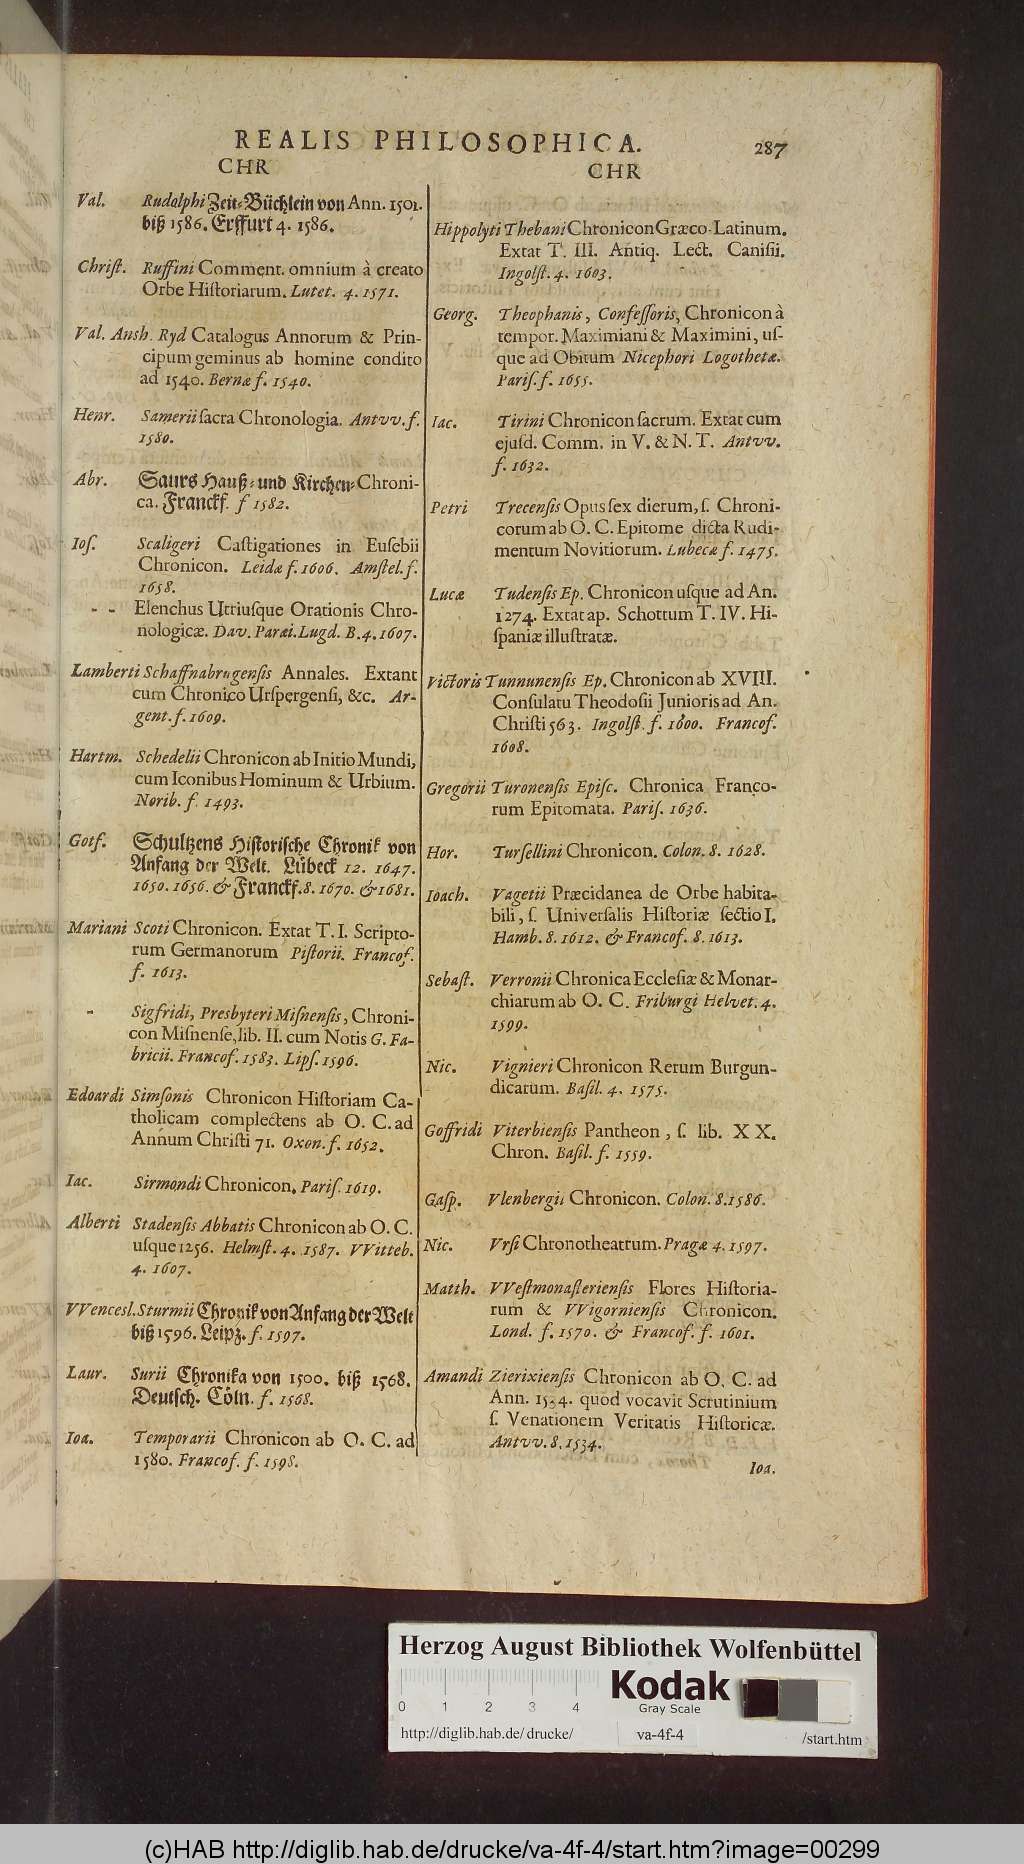 REALIS PHILOSOPHICA. 287
CHR
Val. Rudolphi Zeit-Büchlein von Ann. 1501.
biß 1586. Erffurt 4. 1586.
Christ. Ruffini Comment. omnium à creato
Orbe Historiarum. Lutet. 4. 1571.
Val. Ansh. Ryd Catalogus Annorum & Prin-
cipum geminus ab homine condito
ad 1540. Bernæ f. 1540.
Henr. Samerii sacra Chronologia. Antvv. f.
1580.
Abr. Saurs Hauß- und Kirchen-Chroni-
ca. Franckf. f 1582.
Ios. Scaligeri Castigationes in Eusebii
Chronicon. Leidæ f. 1606. Amstel. f.
1658.
- - Elenchus Utriusque Orationis Chro-
nologicæ. Dav. Paræi. Lugd. B. 4. 1607.
Lamberti Schaffnabrugensis Annales. Extant
cum Chronico Urspergensi, &c. Ar-
gent. f. 1609.
Hartm. Schedelii Chronicon ab Initio Mundi,
cum Iconibus Hominum & Urbium.
Norib. f. 1493.
Gotf. Schultzens Historische Chronik von
Anfang der Welt. Lübeck 12. 1647.
1650. 1656. & Franckf. 8. 1670. & 1681.
Mariani Scoti Chronicon. Extat T. I. Scripto-
rum Germanorum Pistorii. Francof.
f. 1613.
- Sigfridi, Presbyteri Misnensis, Chroni-
con Misnense, lib. II. cum Notis G. Fa-
bricii. Francof. 1583. Lips. 1596.
Edoardi Simsonis Chronicon Historiam Ca-
tholicam complectens ab O. C. ad
Annum Christi 71. Oxon. f. 1652.
Iac. Sirmondi Chronicon. Paris. 1619.
Alberti Stadensis Abbatis Chronicon ab O. C.
usque 1256. Helmst. 4. 1587. VVitteb.
4. 1607.
VVencesl. Sturmii Chronik von Anfang der Welt
biß 1596. Leipz. f. 1597.
Laur. Surii Chronika von 1500. biß 1568.
Deutsch. Cöln. f. 1568.
Ioa. Temporarii Chronicon ab O. C. ad
1580. Francof. f. 1598.
CHR
Hippolyti Thebani Chronicon Græco-Latinum.
Extat T. III. Antiq. Lect. Canisii.
Ingolst. 4. 1603.
Georg. Theophanis, Confessoris, Chronicon à
tempor. Maximiani & Maximini, us-
que ad Obitum Nicephori Logothetæ.
Paris. f. 1655.
Iac. Tirini Chronicon sacrum. Extat cum
ejusd. Comm. in V. & N. T. Antvv.
f. 1632.
Petri Trecensis Opus sex dierum, s. Chroni-
corum ab O. C. Epitome dicta Rudi-
mentum Novitiorum. Lubecæ f. 1475.
Lucæ Tudensis Ep. Chronicon usque ad An.
1274. Extat ap. Schottum T. IV. Hi-
spaniæ illustratæ.
Victoris Tunnunensis Ep. Chronicon ab XVIII.
Consulatu Theodosii Junioris ad An.
Christi 563. Ingolst. f. 1600. Francof.
1608.
Gregorii Turonensis Episc. Chronica Franco-
rum Epitomata. Paris. 1636.
Hor. Tursellini Chronicon. Colon. 8. 1628.
Ioach. Vagetii Præcidanea de Orbe habita-
bili, s. Universalis Historiæ sectio I.
Hamb. 8. 1612. & Francof. 8. 1613.
Sebast. Verronii Chronica Ecclesiæ & Monar-
chiarum ab O. C. Friburgi Helvet. 4.
1599.
Nic. Vignieri Chronicon Rerum Burgun-
dicarum. Basil. 4. 1575.
Goffridi Viterbiensis Pantheon, s. lib. XX.
Chron. Basil. f. 1559.
Gasp. Vlenbergii Chronicon. Colon. 8. 1586.
Nic. Vrsi Chronotheatrum. Pragæ 4. 1597.
Matth. VVestmonasteriensis Flores Historia-
rum & VVigorniensis Chronicon.
Lond. f. 1570. & Francof. f. 1601.
Amandi Zierixiensis Chronicon ab O. C. ad
Ann. 1534. quod vocavit Scrutinium
s. Venationem Veritatis Historicæ.
Antvv. 8. 1534.
Ioa.
Herzog August Bibliothek Wolfenbüttel
0 1 2 3 4
Kodak
Gray Scale
http://diglib.hab.de/drucke/ va-4f-4 /start.htm
(c)HAB http://diglib.hab.de/drucke/va-4f-4/start.htm?image=00299